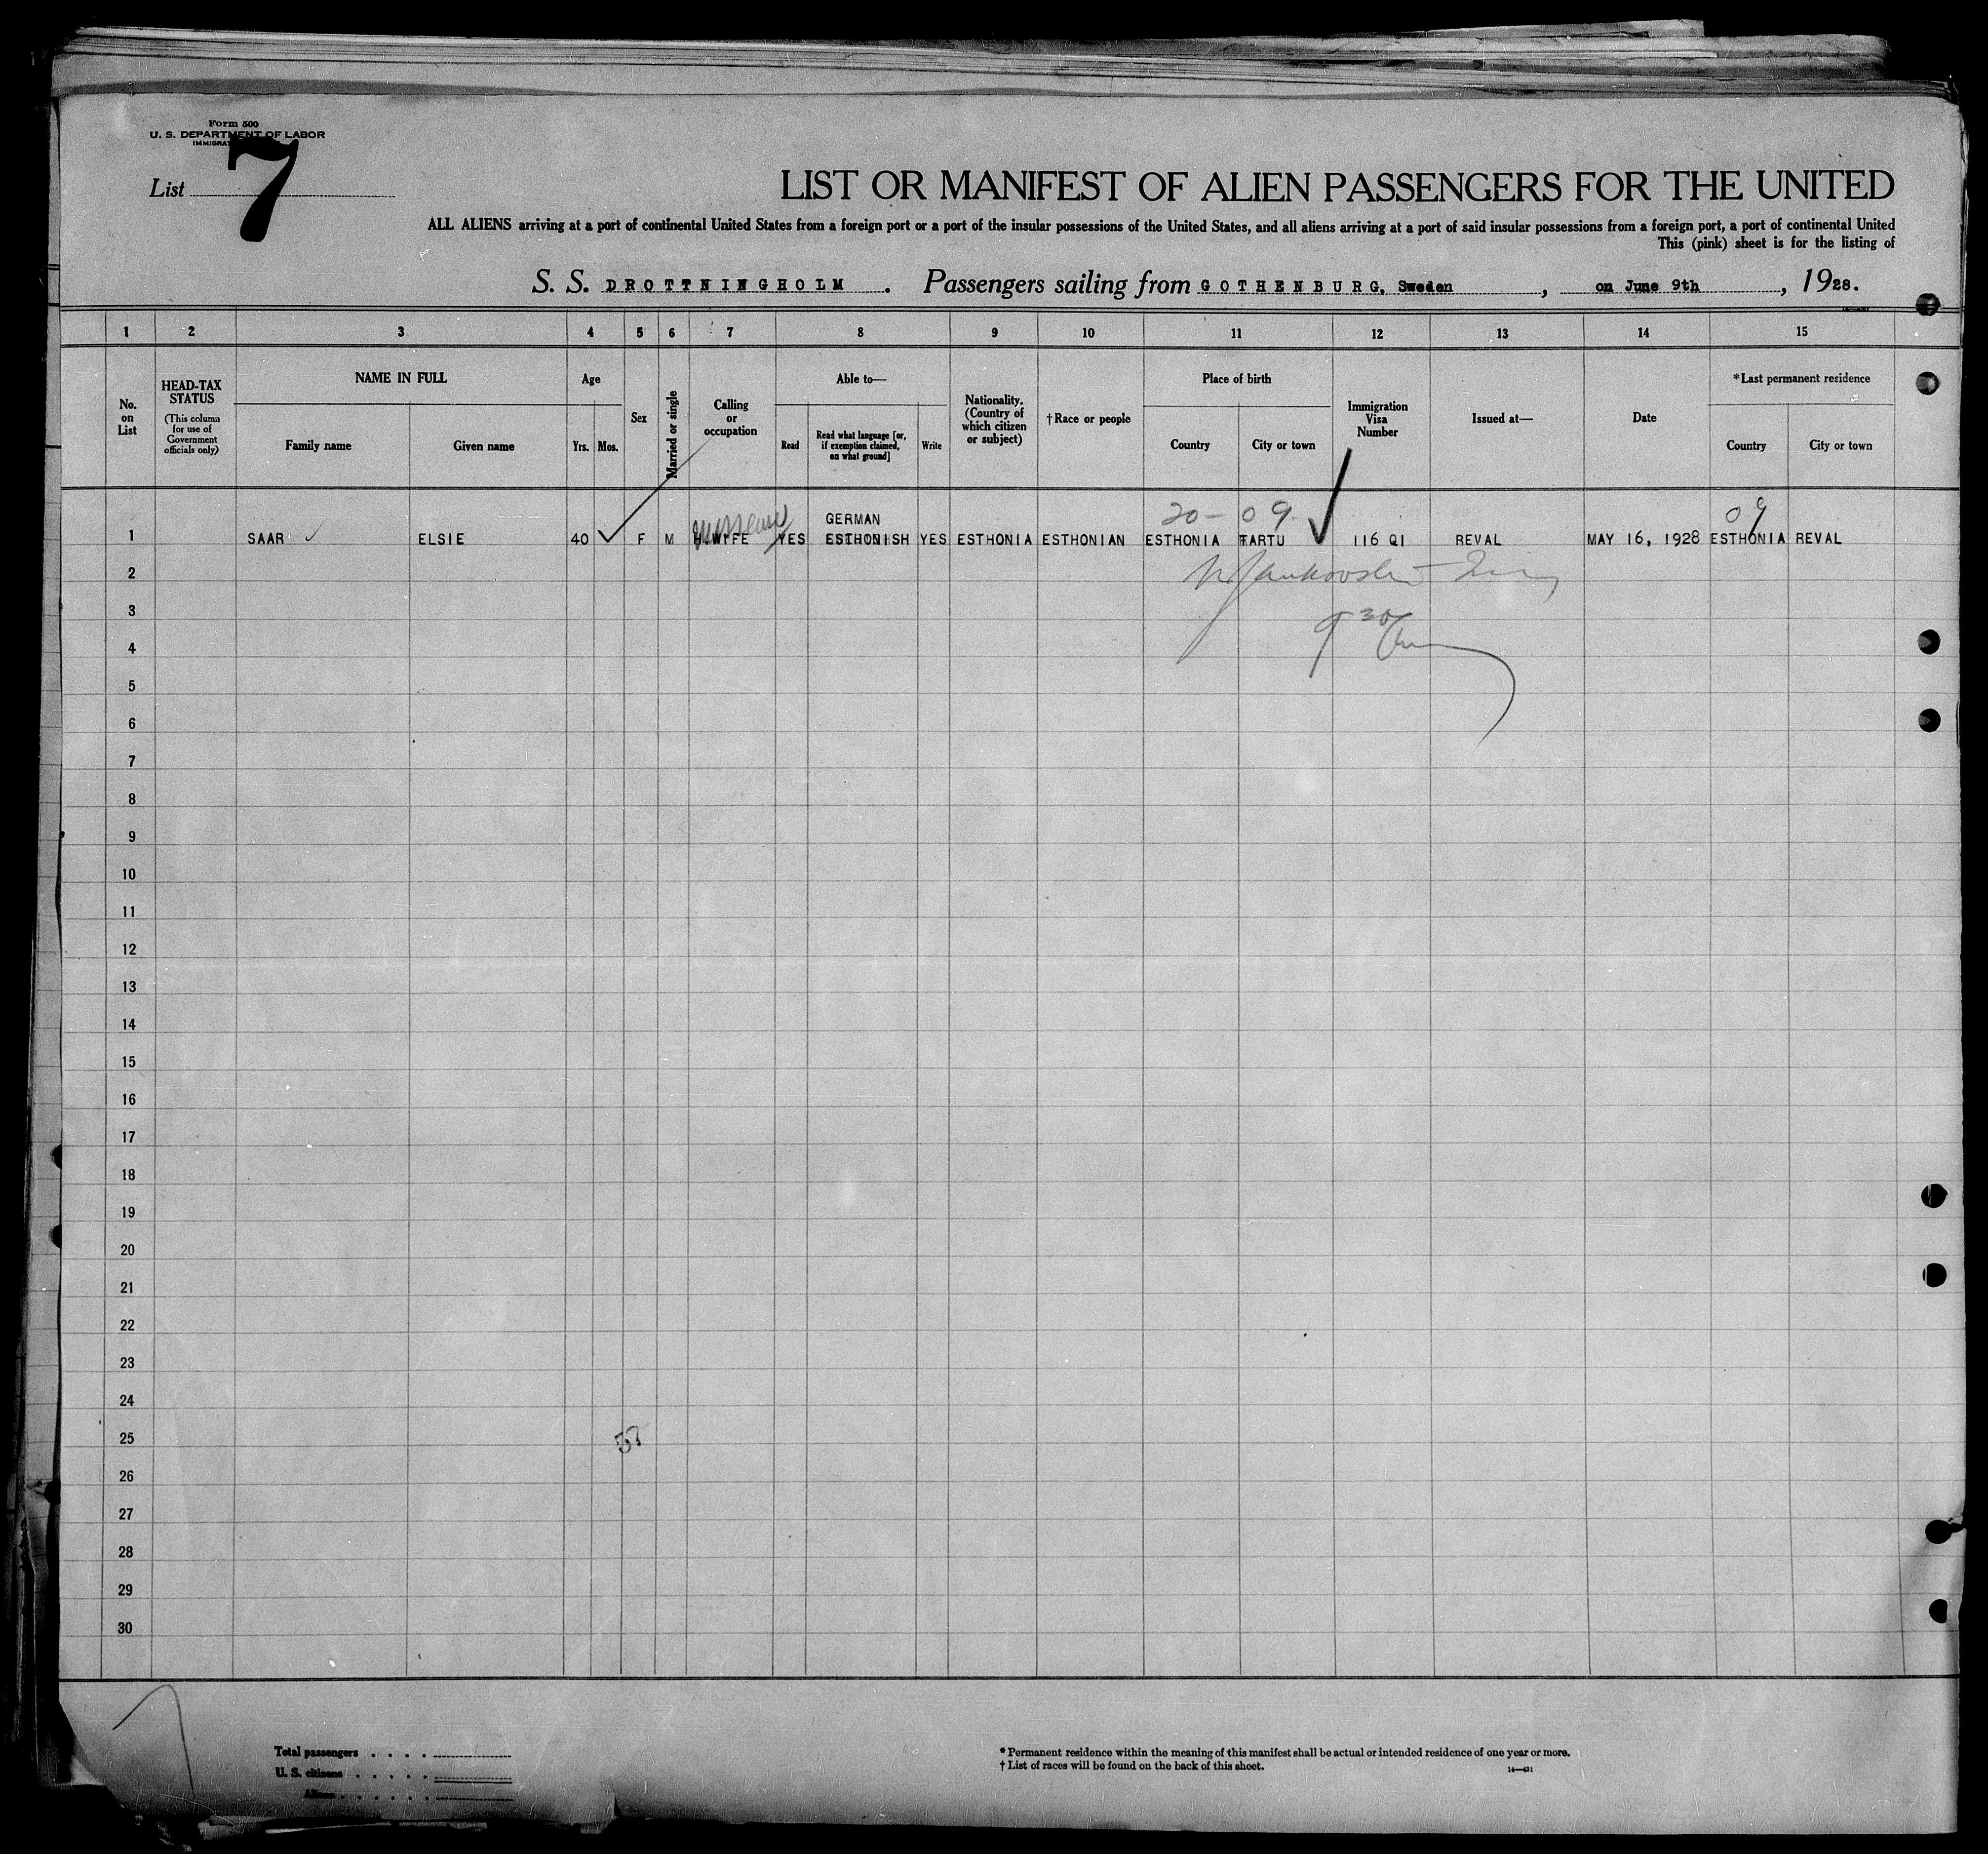 Form 500
U. S. DEPARTMENT OF LABOR
List 7
LIST OR MANIFEST OF ALIEN PASSENGERS FOR THE UNITED
ALL ALIENS arriving at a port of continental United States from a foreign port or a port of the insular possessions of the United States, and all aliens arriving at a port of said insular possessions from a foreign port, a port of continental United
This (pink) sheet is for the listing of
S. S. DROTTNINGHOLM. Passengers sailing from GOTHENBURG, Sweden, on June 9th, 1928.
1 2 3 4 5 6 7 8 9 10 11 12 13 14 15
No. on List
HEAD-TAX STATUS
(This column for use of Government officials only)
NAME IN FULL
Family name Given name
Age
Yrs. Mos.
Sex
Married or single
Calling or occupation
Able to—
Read
Read what language [or, if exemption claimed, on what ground]
Write
Nationality. (Country of which citizen or subject)
†Race or people
Place of birth
Country City or town
Immigration Visa Number
Issued at—
Date
*Last permanent residence
Country City or town
GERMAN 20- 09 09
1 SAAR ELSIE 40 F M H.WIFE YES ESTHONISH YES ESTHONIA ESTHONIAN ESTHONIA TARTU 116 QI REVAL MAY 16, 1928 ESTHONIA REVAL
2
3
4
5
6
7
8
9
10
11
12
13
14
15
16
17
18
19
20
21
22
23
24
25
26
27
28
29
30
Total passengers
U. S. citizens
Aliens
* Permanent residence within the meaning of this manifest shall be actual or intended residence of one year or more.
† List of races will be found on the back of this sheet.